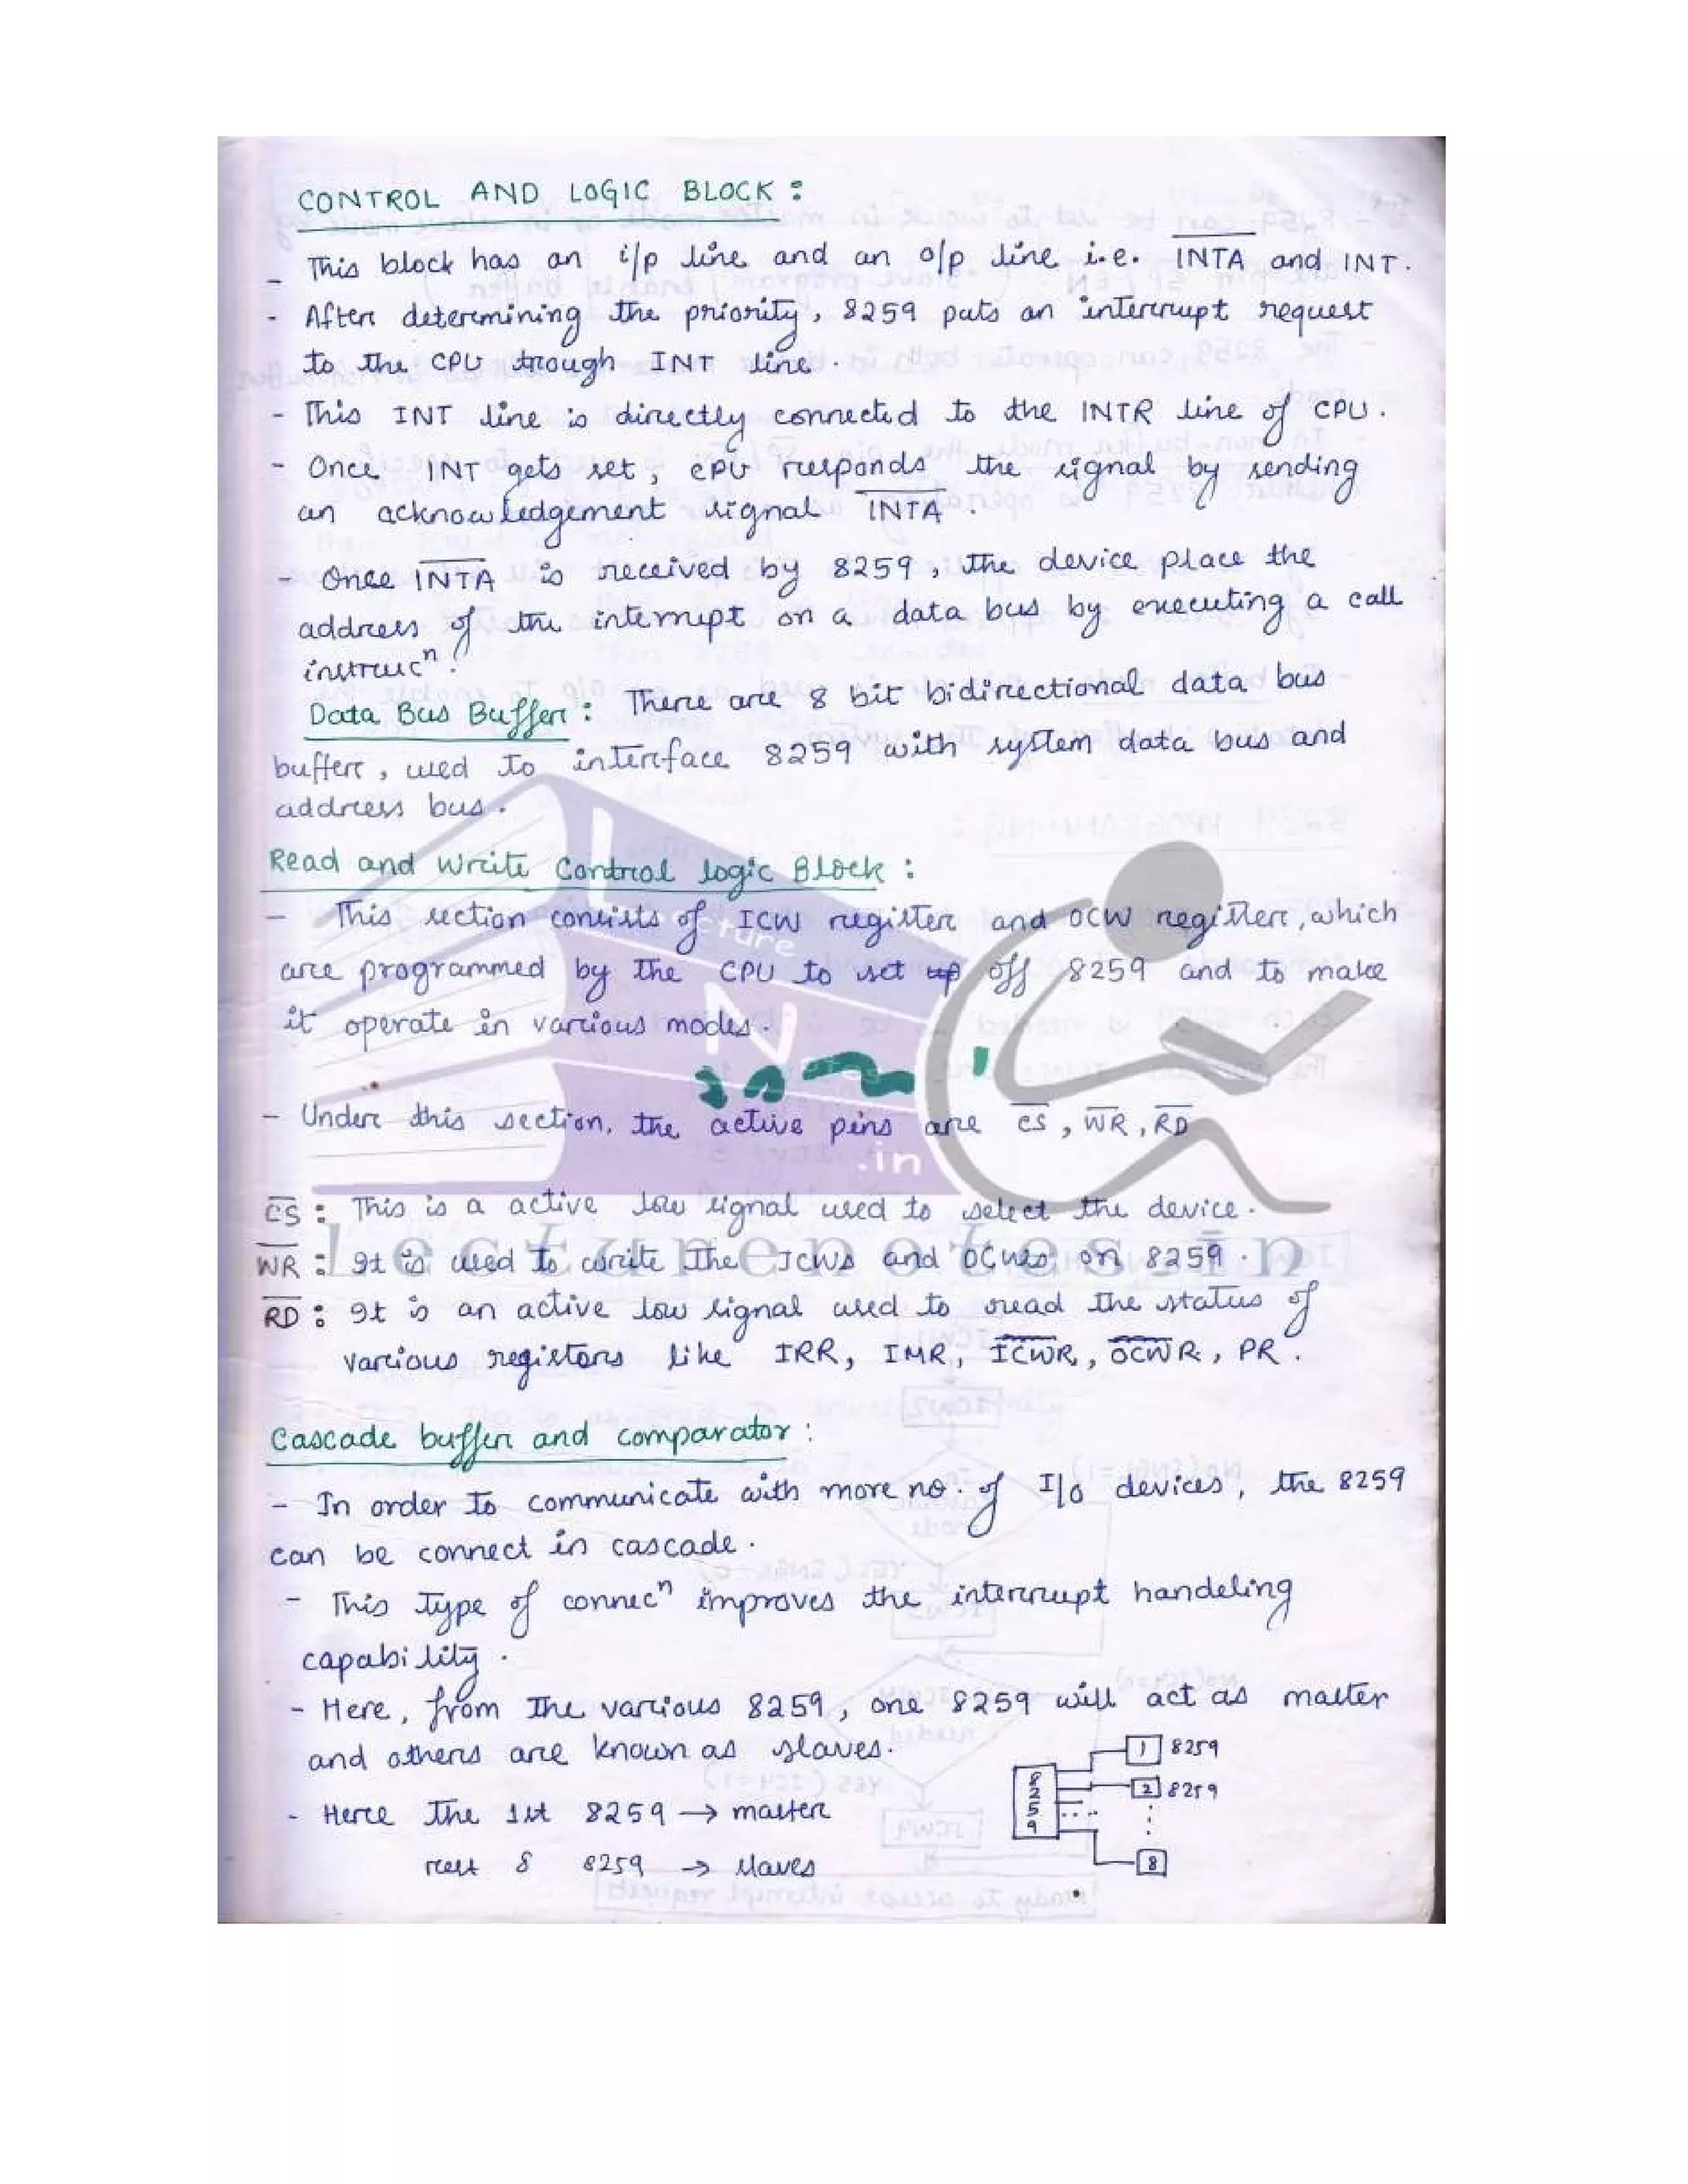 CONTROL AND LOGIC BLOCK :
- This block has an i/p line and an o/p line i.e. I̅N̅T̅A̅ and INT.
- After determining the priority, 8259 puts an interrupt request
to the CPU trough INT line.
- This INT line is directly connected to the INTR line of CPU.
- Once INT gets set, CPU responds the signal by sending
an acknowledgement signal I̅N̅T̅A̅.
- Once I̅N̅T̅A̅ is received by 8259, the device place the
address of the interrupt on a data bus by executing a call
instrucⁿ.
Data Bus Buffer : There are 8 bit bidirectional data bus
buffer, used to interface 8259 with system data bus and
address bus.
Read and Write Control logic Block :
- This section consists of ICW register and OCW register, which
are programmed by the CPU to set up off 8259 and to make
it operate in various modes.
- Under this section, the active pins are C̅S̅, W̅R̅, R̅D̅
C̅S̅ : This is a active low signal used to select the device.
W̅R̅ : It is used to write the ICWs and OCWs on 8259.
R̅D̅ : It is an active low signal used to read the status of
various registers like IRR, IMR, I̅C̅W̅R, O̅C̅W̅R, PR.
Cascade buffer and comparator :
- In order to communicate with more no. of I/o devices, the 8259
can be connect in cascade.
- This type of connecⁿ improves the interrupt handeling
capability.
- Here, from the various 8259, one 8259 will act as master
and others are known as slaves.
1 8259
2 8259
8259
8
- Here the 1st 8259 → master
rest 8 8259 → slaves
Lecture
Notes
.in
Lecturenotes.in